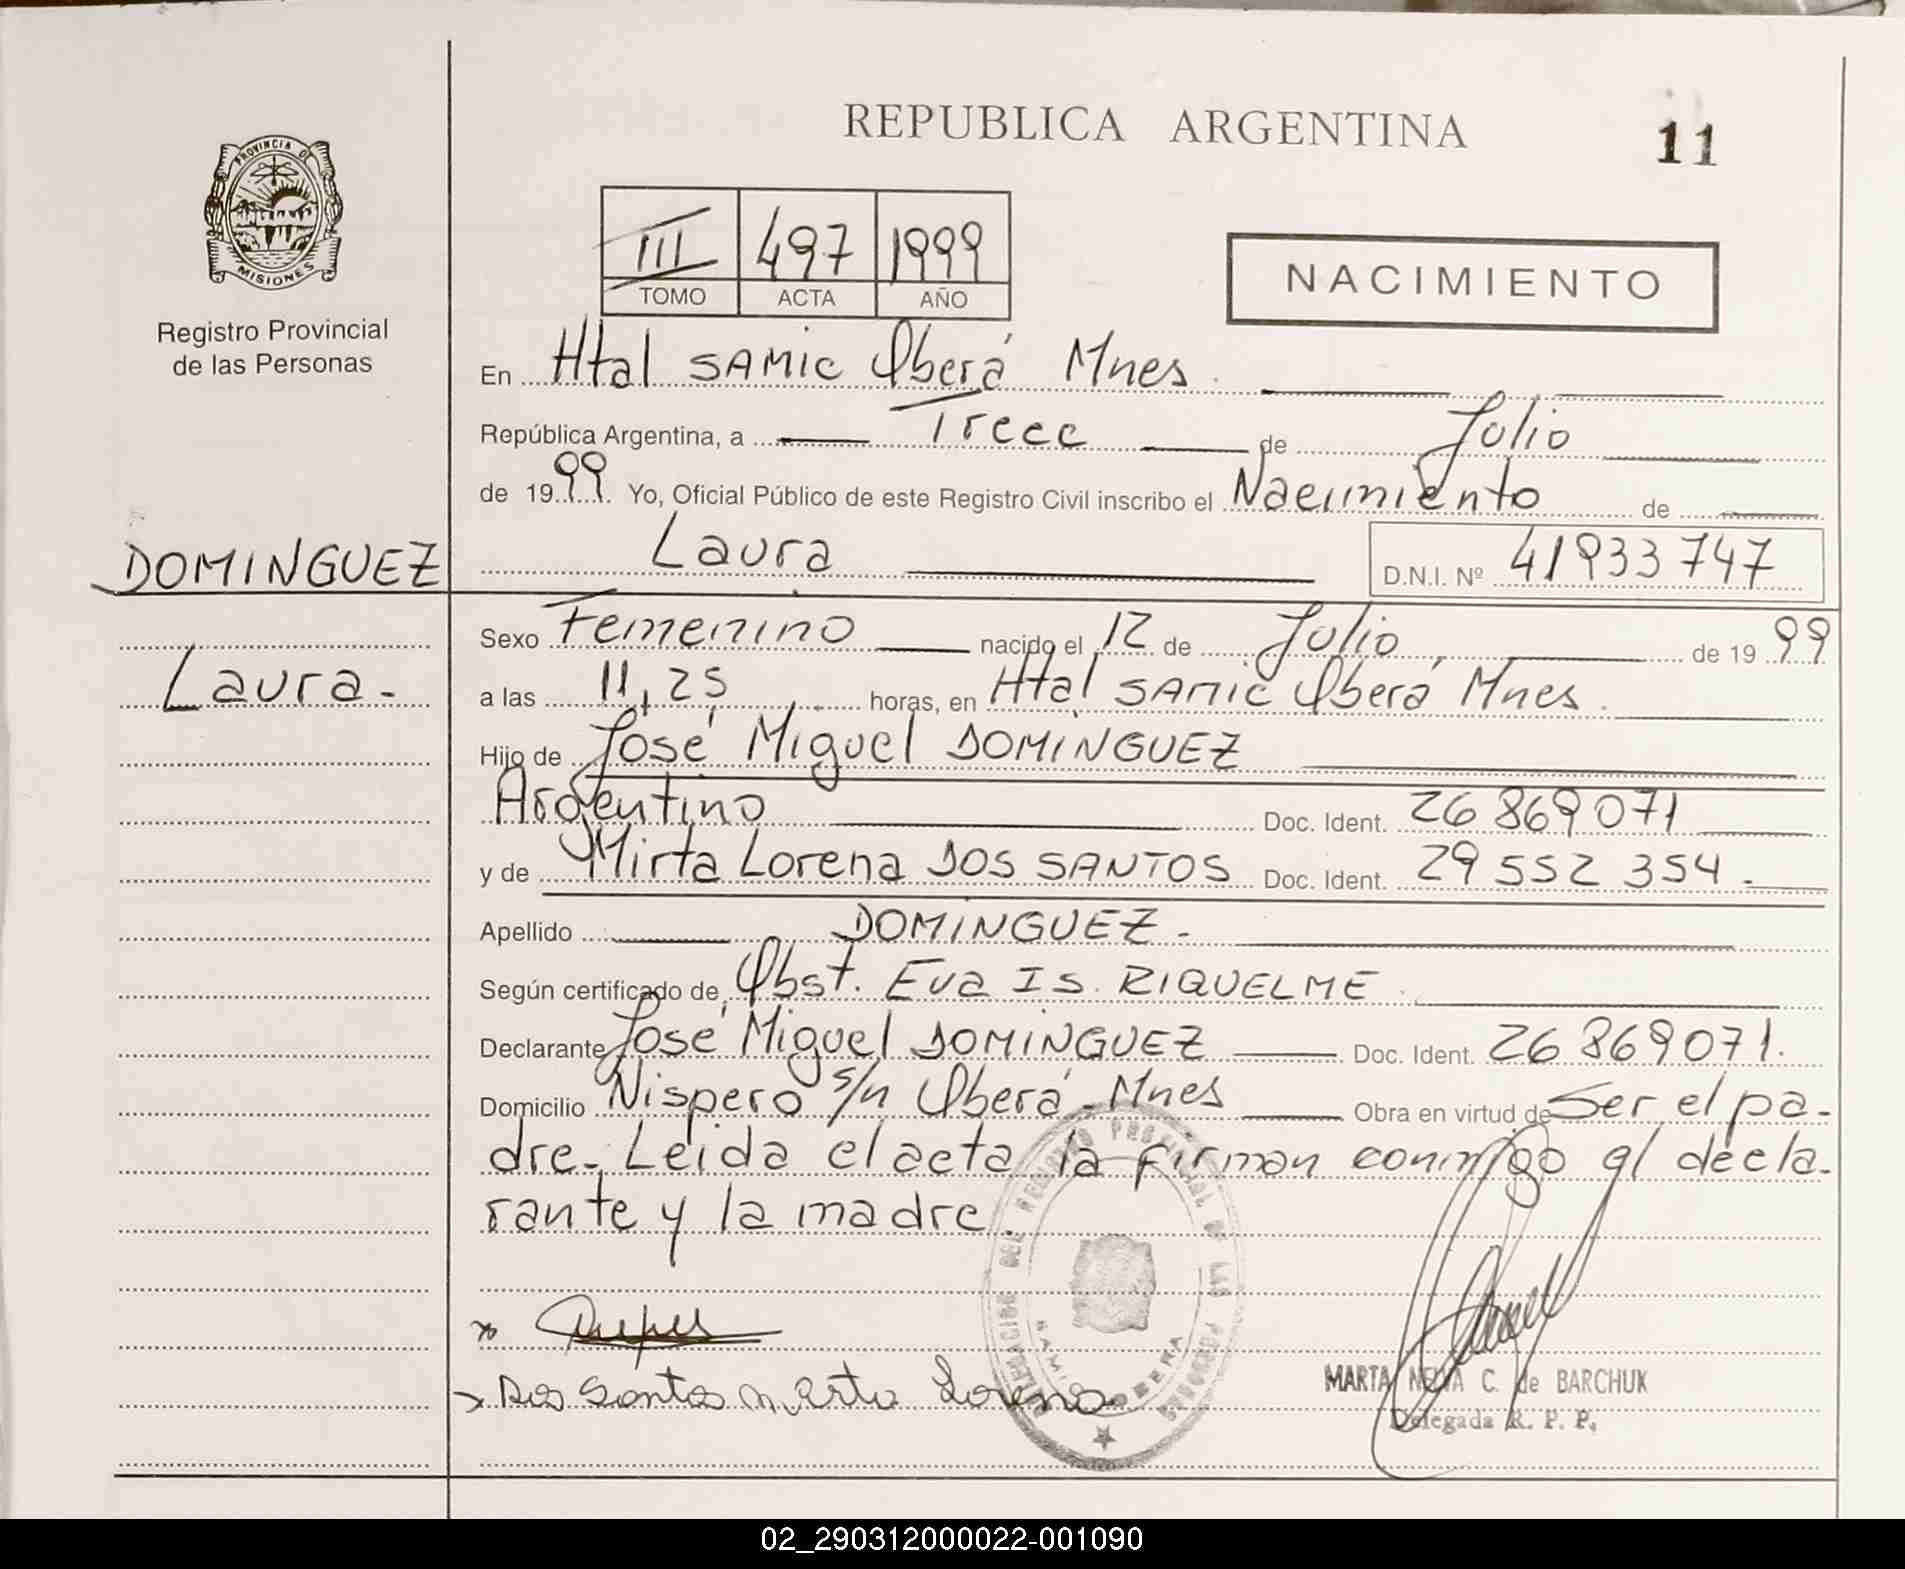 REPUBLICA ARGENTINA
11
PROVINCIA DE
MISIONES
Registro Provincial
de las Personas
III 497 1999
TOMO ACTA AÑO
NACIMIENTO
En Htal SAMIC Oberá Mnes.
República Argentina, a Trece de Julio
de 1999. Yo, Oficial Público de este Registro Civil inscribo el Nacimiento de
DOMINGUEZ
Laura D.N.I. Nº 41933747
Sexo Femenino nacido el 12 de Julio de 1999
Laura.
a las 11,25 horas, en Htal SAMIC Oberá Mnes.
Hijo de José Miguel DOMINGUEZ
Argentino Doc. Ident. 26869071
y de Mirta Lorena DOS SANTOS Doc. Ident. 29552354.
Apellido DOMINGUEZ.
Según certificado de Obst. Eva Is. RIQUELME.
Declarante José Miguel DOMINGUEZ Doc. Ident. 26869071.
Domicilio Nispero s/n Oberá-Mnes Obra en virtud de Ser el pa-
dre. Leida el acta la firman conmigo el decla-
rante y la madre
Dos Santos Mirta Lorena
MARTA NELVA C. de BARCHUK
Delegada R. P. P.
02_290312000022-001090